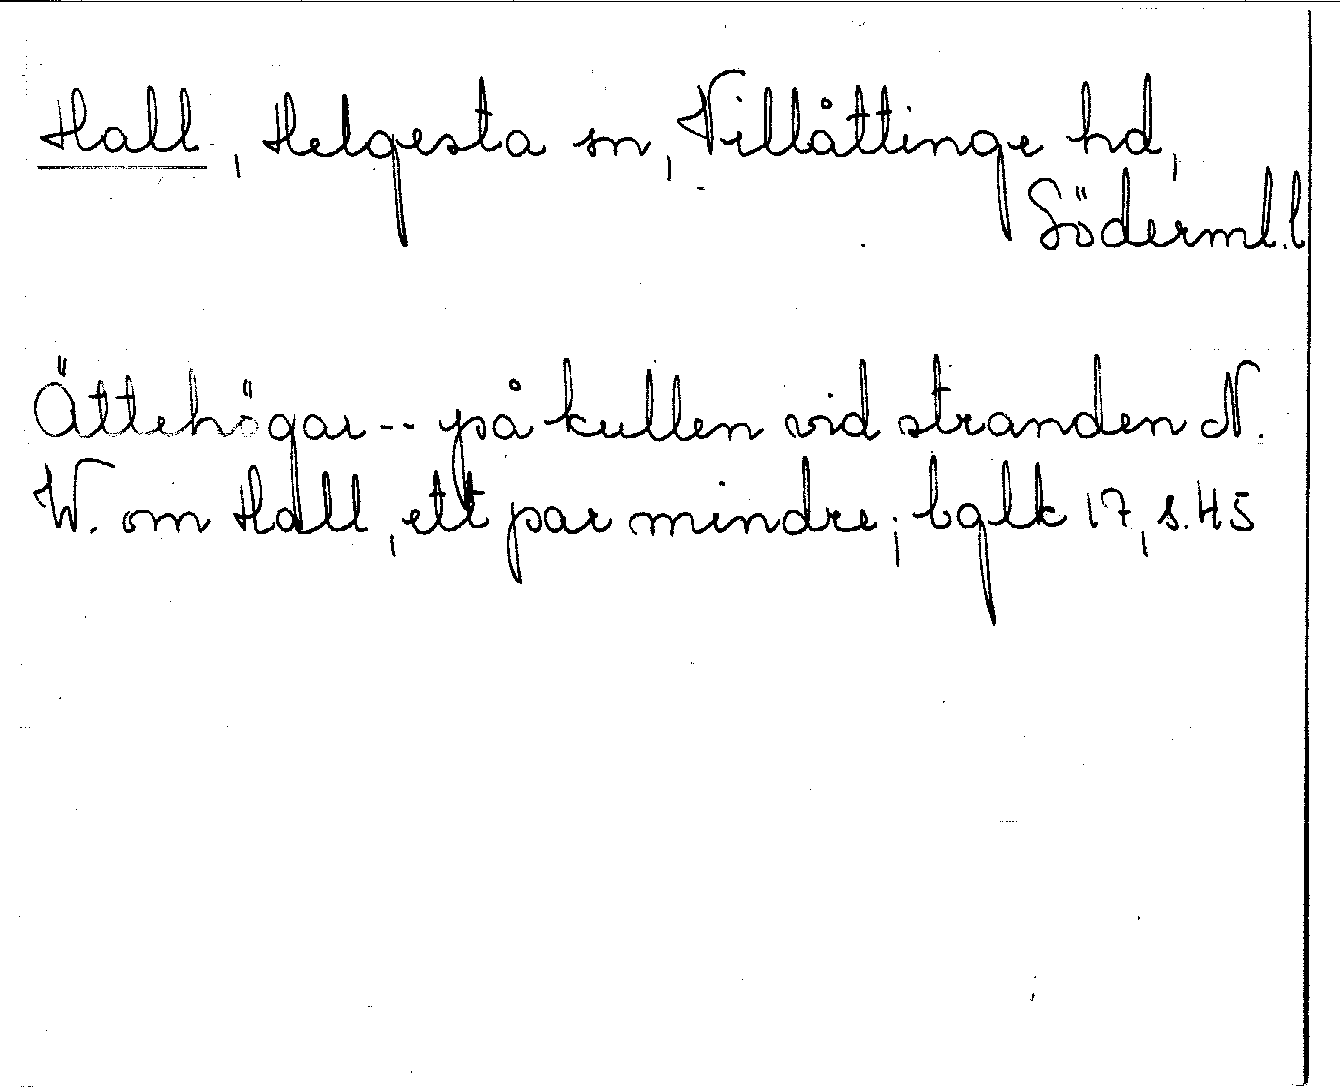 Hall, Helgesta sn, Villåttinge hd,
Söderml. l
Ättehögar -- på kullen vid stranden N.
W. om Hall, ett par mindre; bglk 17, s. 45